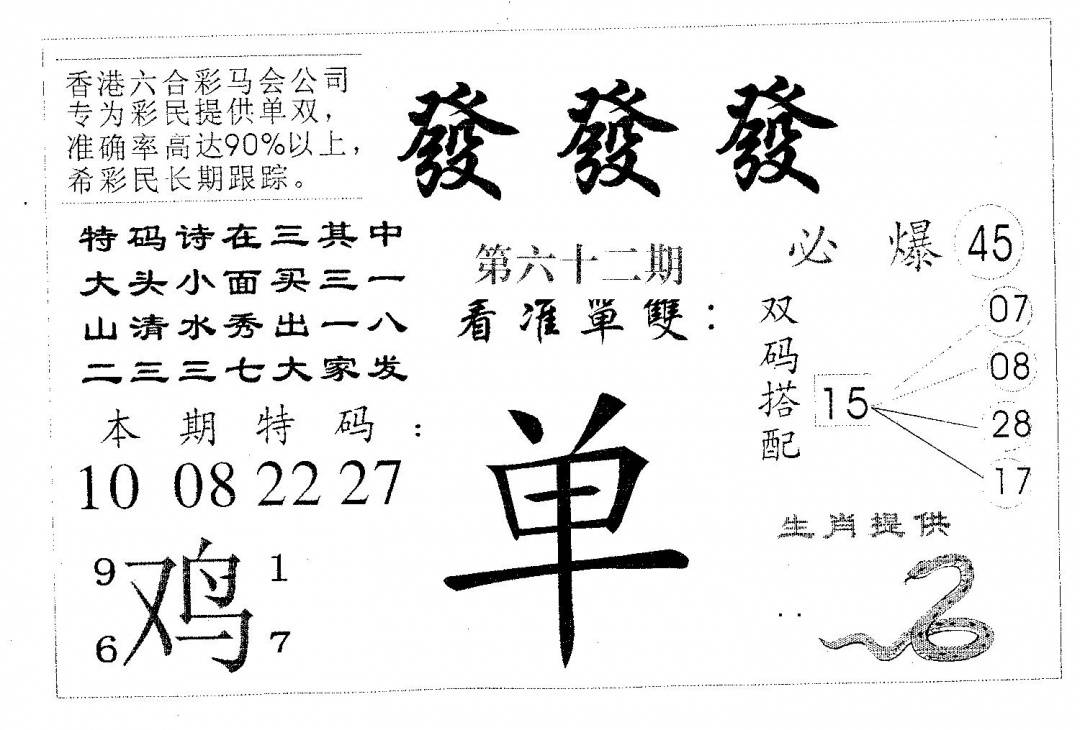 香港六合彩马会公司
专为彩民提供单双，
准确率高达90%以上，
希彩民长期跟踪。
發 發 發
特码诗在三其中
大头小面买三一
山清水秀出一八
二三三七大家发
第六十二期
看准單雙：
必 爆 45
双码搭配
15
07
08
28
17
本期特码：
10 08 22 27
9 1
鸡
6 7
单
生肖提供